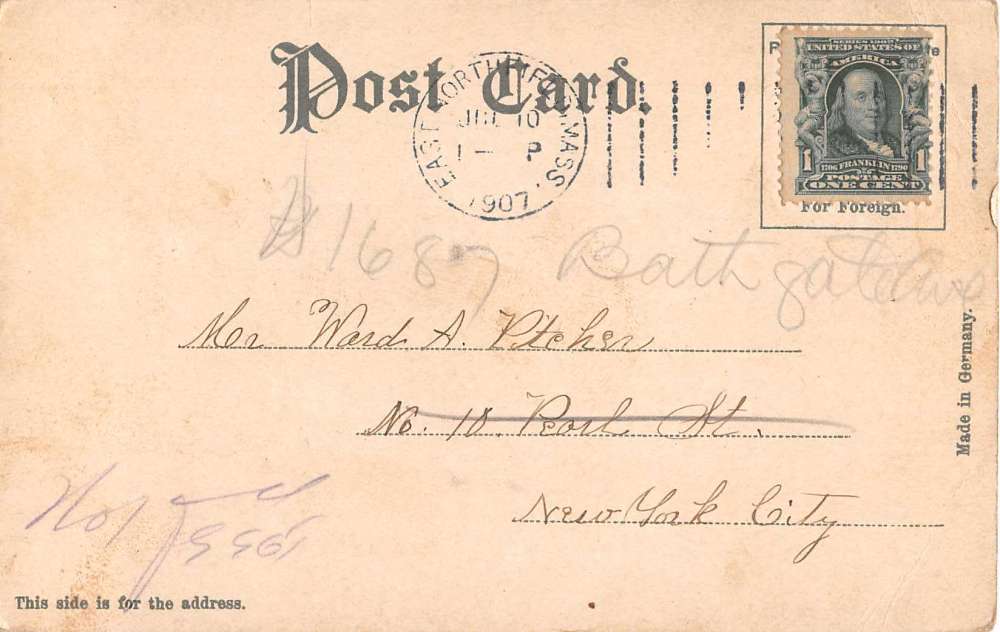 Post Card.
EAST NORTHFIELD, MASS.
JUL 10
1 – P
1907
SERIES 1902
UNITED STATES OF
AMERICA
1 1
1706 FRANKLIN 1790
POSTAGE
ONE CENT
For Foreign.
1687 Bathgate Ave
Mr Ward A. Pitcher
No. 10. Pearl St.
New York City
Made in Germany.
This side is for the address.